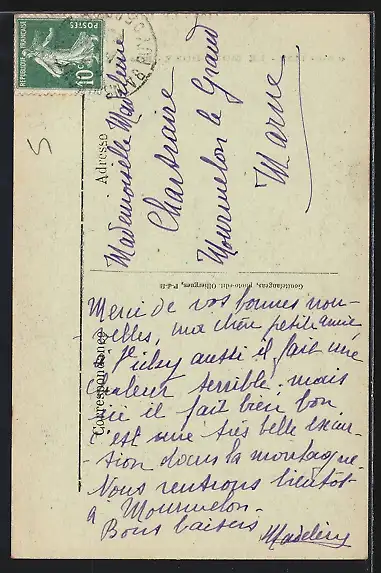 RÉPUBLIQUE FRANÇAISE
POSTES
10c
5
Adresse
Mademoiselle Madeleine
Chartraire
Mourmelon le Grand
Marne
Gouttefangeas, photo-édit. Olliergues, P-d-D
Correspondance
Merci de vos bonnes nou-
velles, ma chère petite amie
Vichy aussi il fait une
chaleur terrible. mais
ici il fait bien bon
c'est une très belle excur-
-tion dans la montagne.
Nous rentrons bientôt
à Mourmelon.
Bons baisers